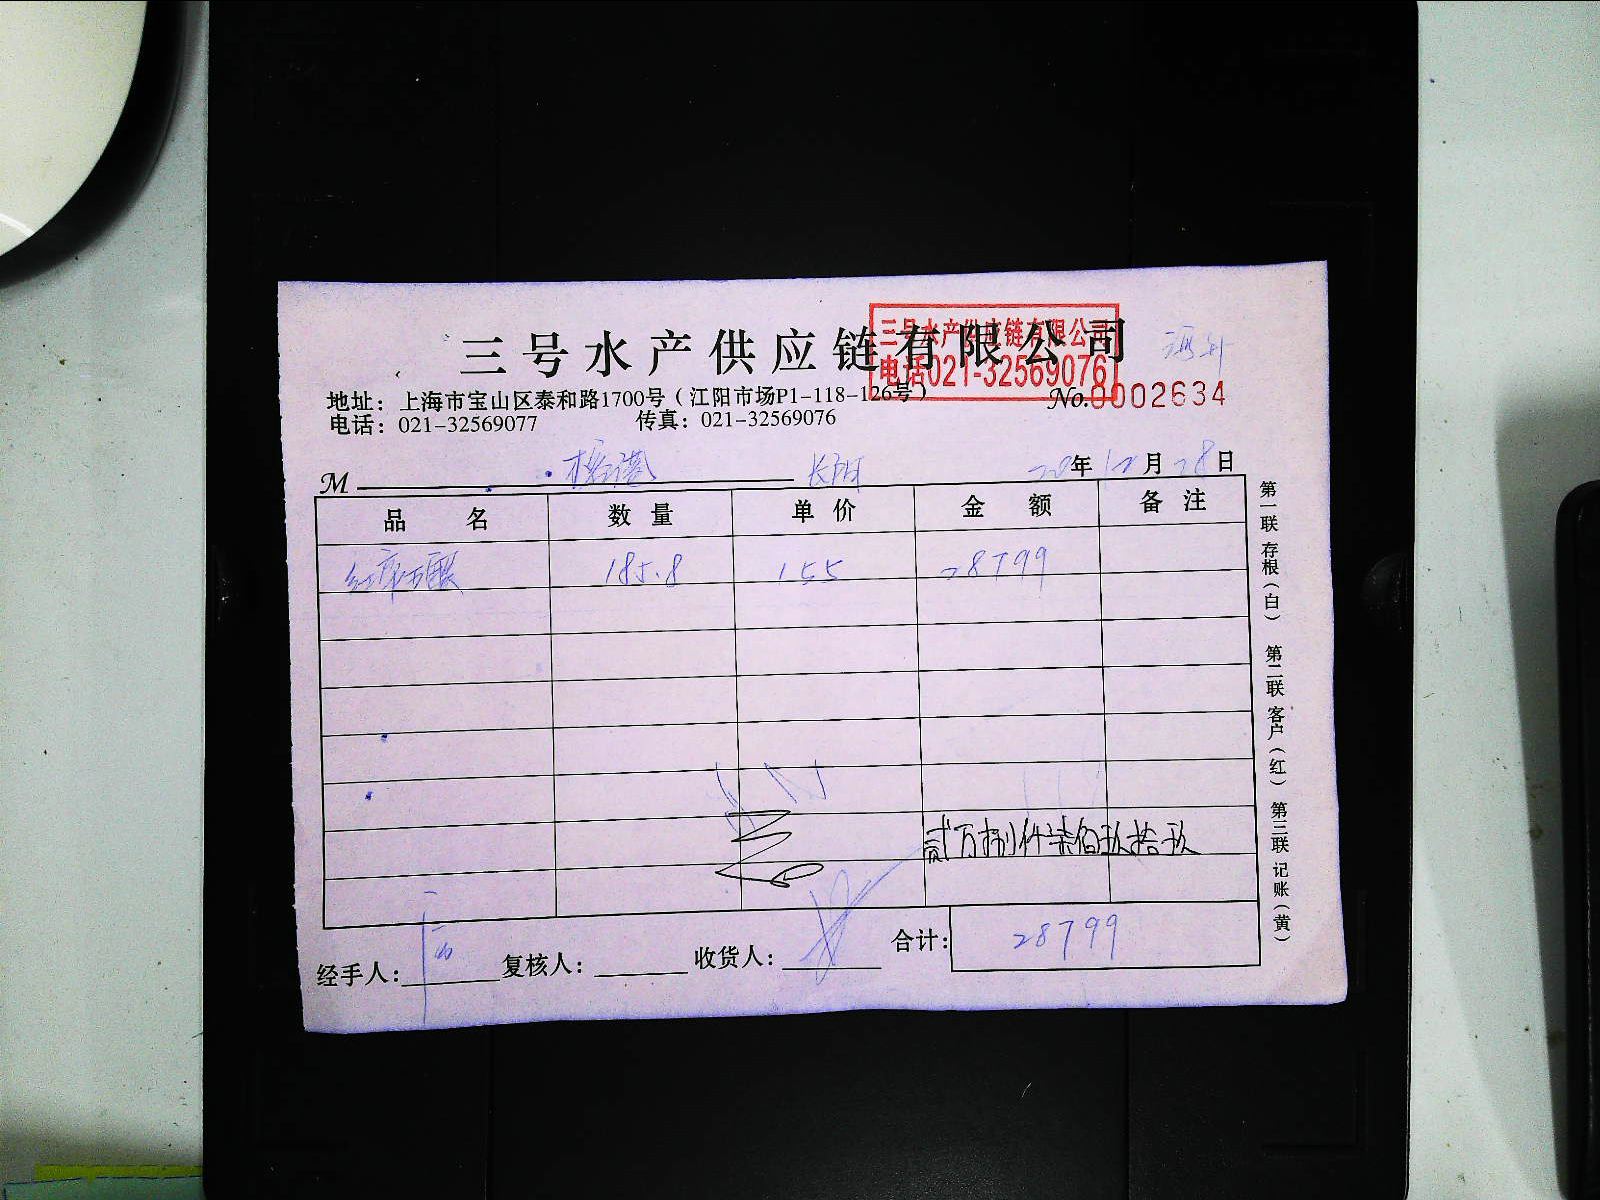 三号水产供应链有限公司
三号水产供应链有限公司
电话021-32569076
地址：上海市宝山区泰和路1700号（江阳市场P1-118-126号）
No.0002634
电话：021-32569077 传真：021-32569076
M 杨港 长阳 20年12月28日
品名 数量 单价 金额 备注
185.8 155 28799
贰万捌仟柒佰玖拾玖
经手人： 复核人： 收货人： 合计：28799
第一联 存根（白） 第二联 客户（红） 第三联 记账（黄）